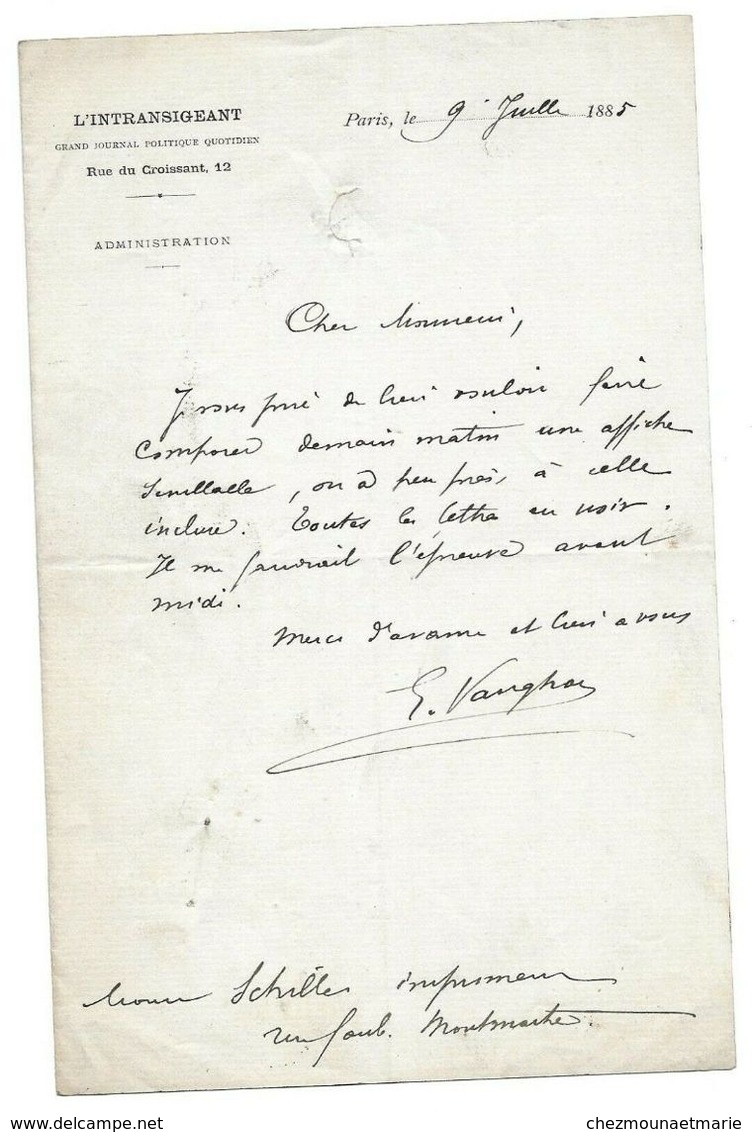 L'INTRANSIGEANT
GRAND JOURNAL POLITIQUE QUOTIDIEN
Rue du Croissant, 12
ADMINISTRATION
Paris, le 9 Juillet 1885
Cher Monsieur,
Je vous prie de bien vouloir faire
composer demain matin une affiche
semblable, ou à peu près, à celle
incluse. Toutes les lettres en noir.
Il me faudrait l'épreuve avant
midi.
Merci d'avance et bien à vous
E. Vaughan
Monsieur Schiller imprimeur
rue Faub. Montmartre.
chezmounaetmarie
www.delcampe.net